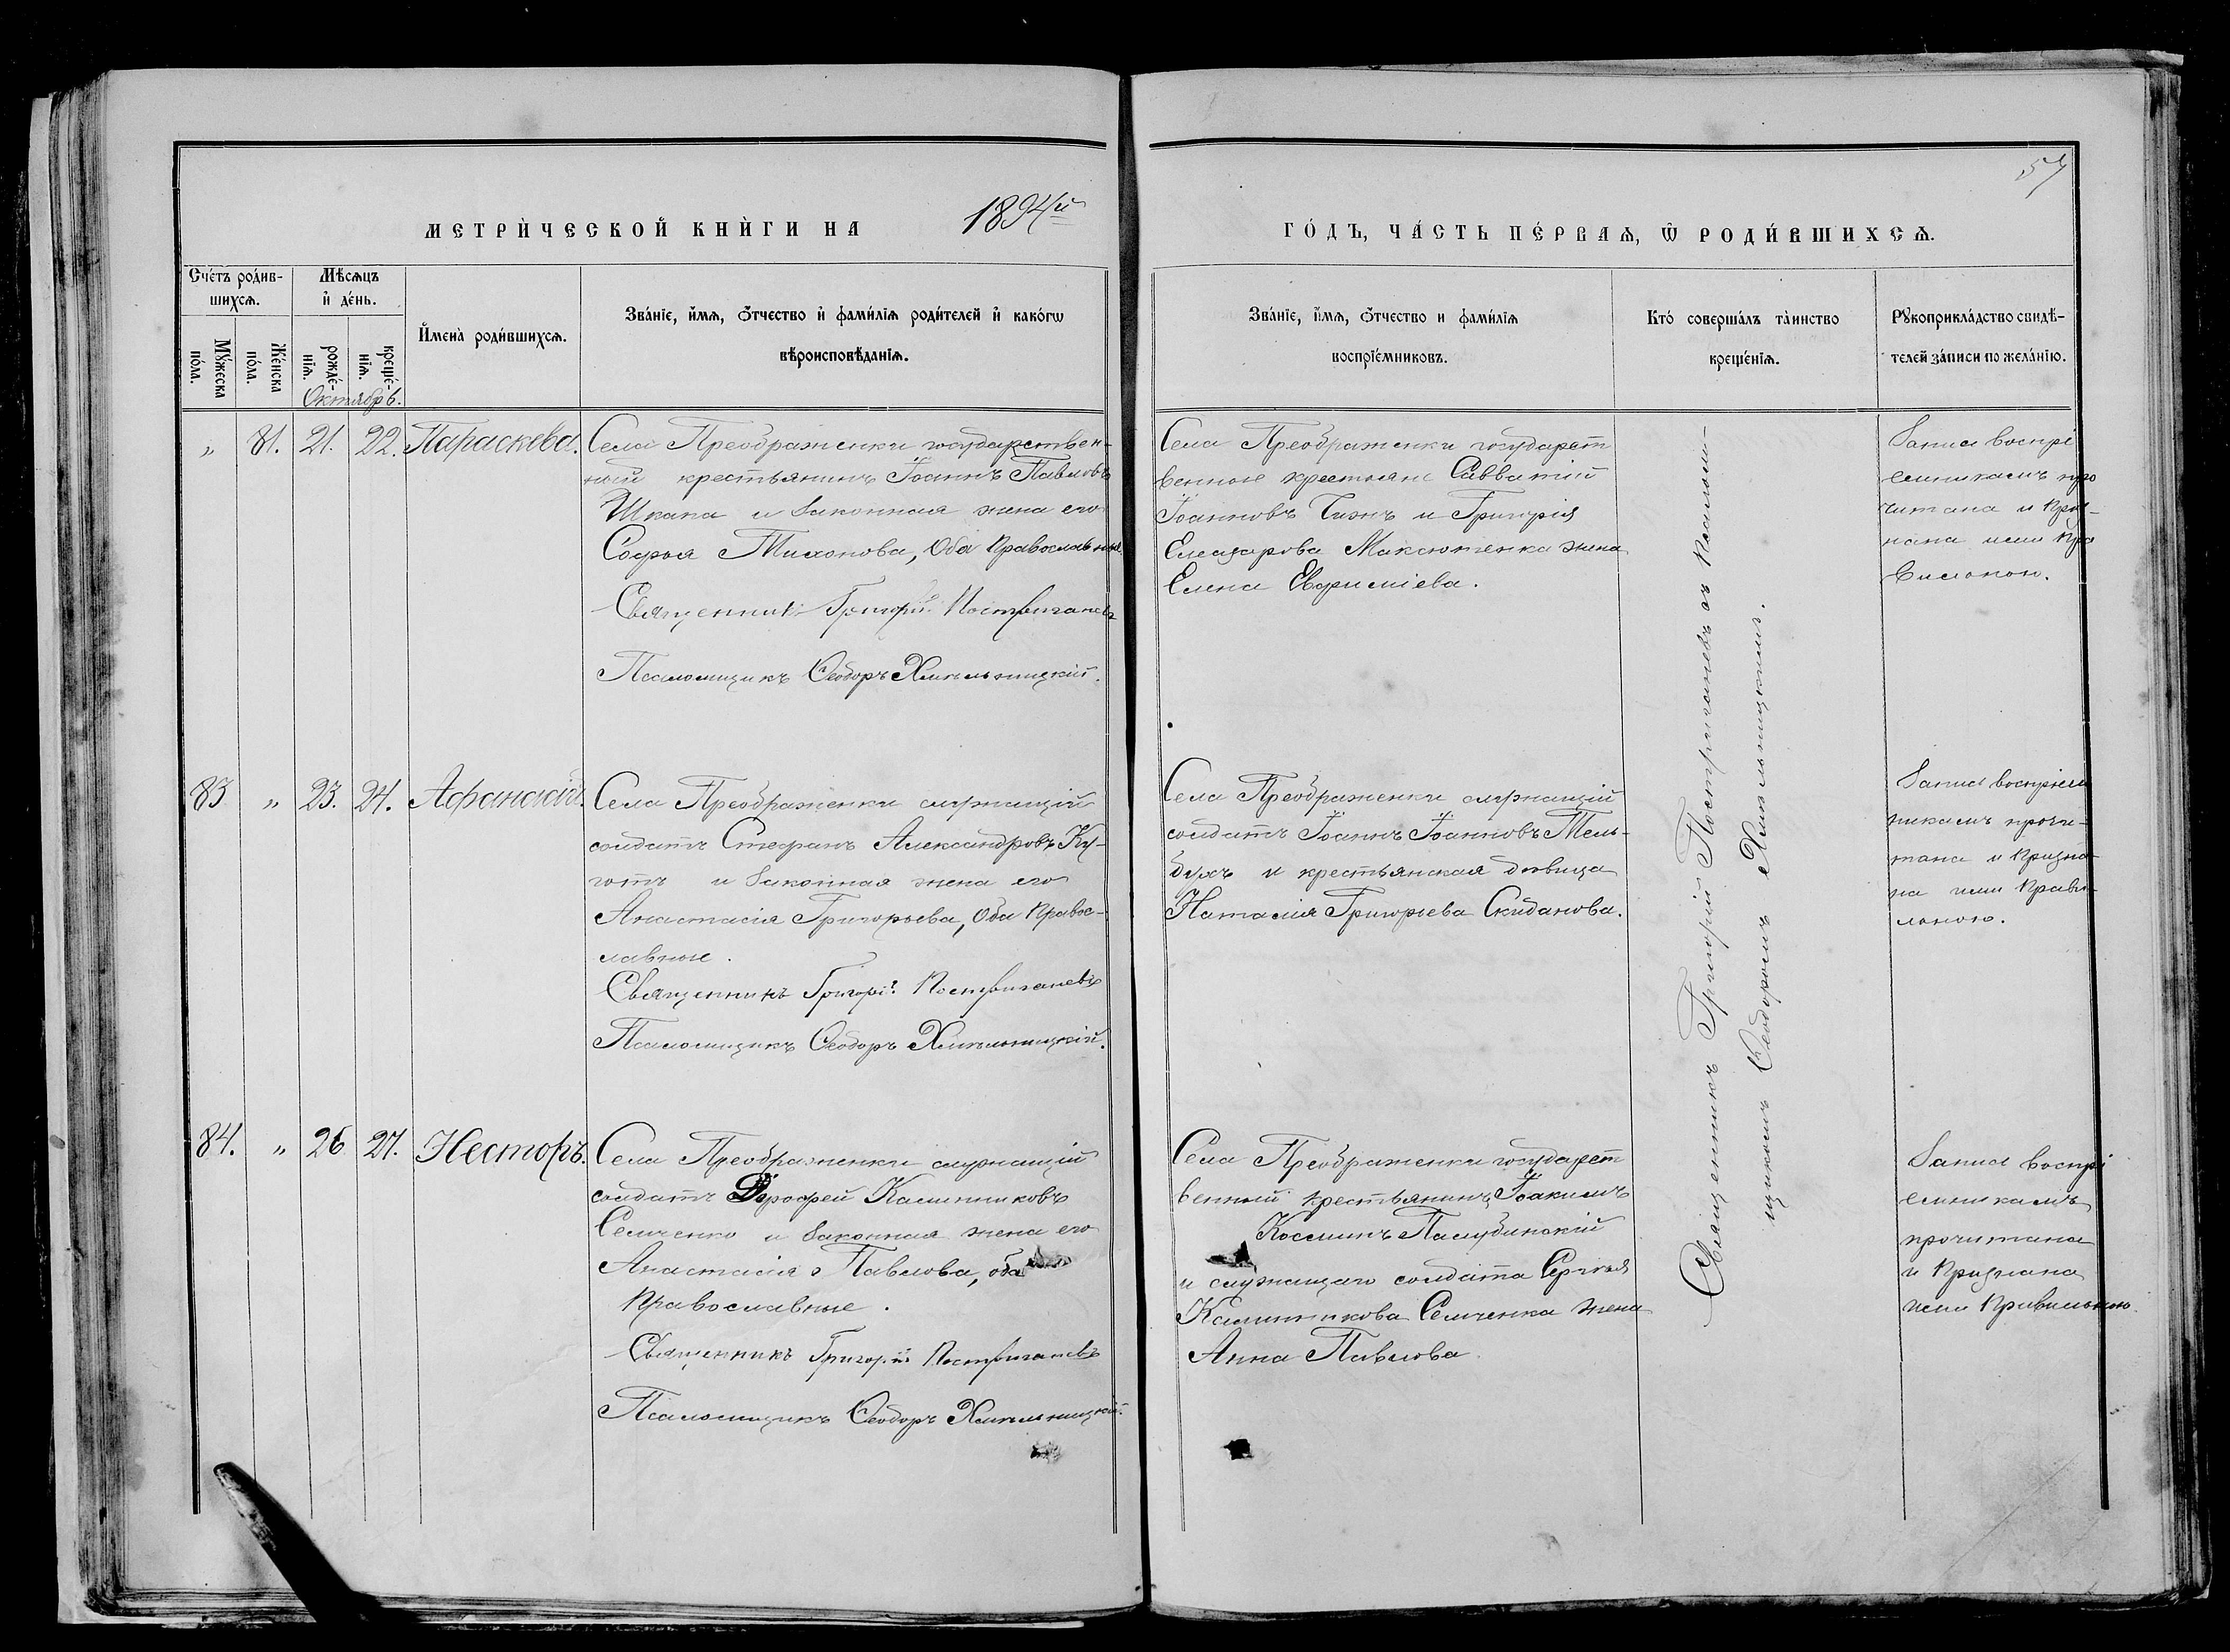 57
МЕТРИ́ЧЕСКОЙ КНИ́ГИ НА 1894й
ГО́ДЪ, ЧА́СТЬ ПЕ́РВАѦ, Ѽ РОДИ́ВШИХСѦ.
Сче́тъ роди́в-
шихсѧ.
Мꙋ́жеска
по́ла.
Же́нска
по́ла.
Мѣ́сѧцъ
и҆ де́нь.
рожде́-
нїѧ.
креще́-
нїѧ.
Октябрь.
И҆мена̀ роди́вшихсѧ.
Зва́нїе, и҆́мѧ, ѻ҆́тчество и҆ фами́лїѧ роди́телей и҆ како́гѡ
вѣроисповѣ́данїѧ.
Зва́нїе, и҆́мѧ, ѻ҆́тчество и фами́лїѧ
воспрїе́мниковъ.
Кто́ соверша́лъ та́инство
креще́нїѧ.
Рꙋкоприкла́дство свидѣ́-
телей за́писи по жела́нїю.
„ 81. 21. 22. Параскева.
Села Преображенки государствен-
ный крестьянинъ Іоаннъ Павловъ
Шкапа и законная жена его
Софья Тихонова, Оба Православные.
Священникъ Григорій Постригачевъ
Псаломщикъ Ѳеодоръ Хмѣльницкій.
Села Преображенки государст
венные крестьяне Савватій
Іоанновъ Чижъ и Григорія
Елеазарова Максютенка жена
Елена Евфиміева.
Запись воспрі
емникамъ про
читана и приз-
нана ими пра
вильною.
83 „ 23. 24. Афанасій.
Села Преображенки служащій
солдатъ Стефанъ Александровъ Ку-
готъ и законная жена его
Анастасія Григорьева, Оба Правос-
лавные.
Священникъ Григорій Постригачевъ
Псаломщикъ Ѳеодоръ Хмѣльницкій.
Села Преображенки служащій
солдатъ Іоаннъ Іоанновъ Тель-
бухъ и крестьянская дѣвица
Наталія Григорьева Скиданова.
Запись воспріем
никамъ прочи-
тана и призна-
на ими прави-
льною.
84. „ 26 27. Несторъ.
Села Преображенки служащій
солдатъ Дорофей Калинниковъ
Семченко и законная жена его
Анастасія Павлова, оба
Православные.
Священникъ Григорій Постригачевъ
Псаломщикъ Ѳеодоръ Хмѣльницкій.
Села Преображенки государст
венный крестьянинъ Іоакимъ
Косминъ Палубинскій
и служащаго солдата Сергѣя
Калинникова Семченка жена
Анна Павлова.
Запись воспрі
емникамъ
прочитана
и признана
ими правильною.
Священникъ Григорій Постригачевъ съ Псалом-
щикомъ Ѳеодоромъ Хмѣльницкимъ.